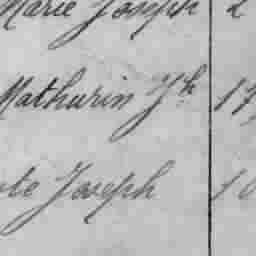 Marie Joseph 2
Mathurin Jh 17
te Joseph 1